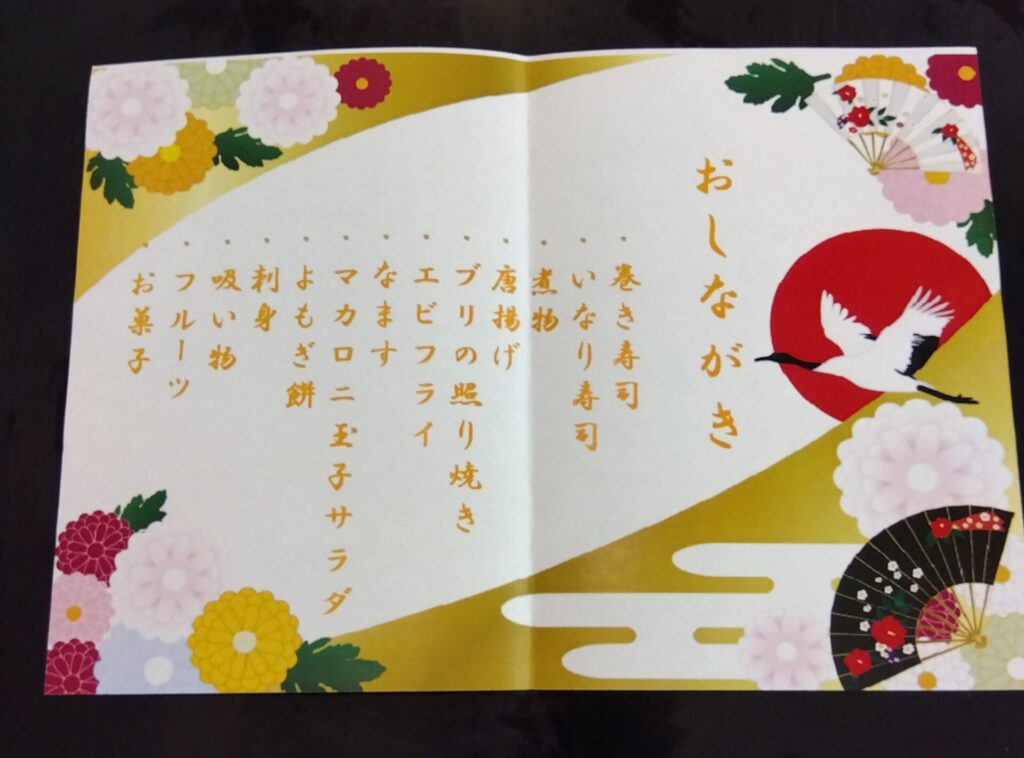 おしながき
・巻き寿司
・いなり寿司
・煮物
・唐揚げ
・ブリの照り焼き
・エビフライ
・なます
・マカロニ玉子サラダ
・よもぎ餅
・刺身
・吸い物
・フルーツ
・お菓子